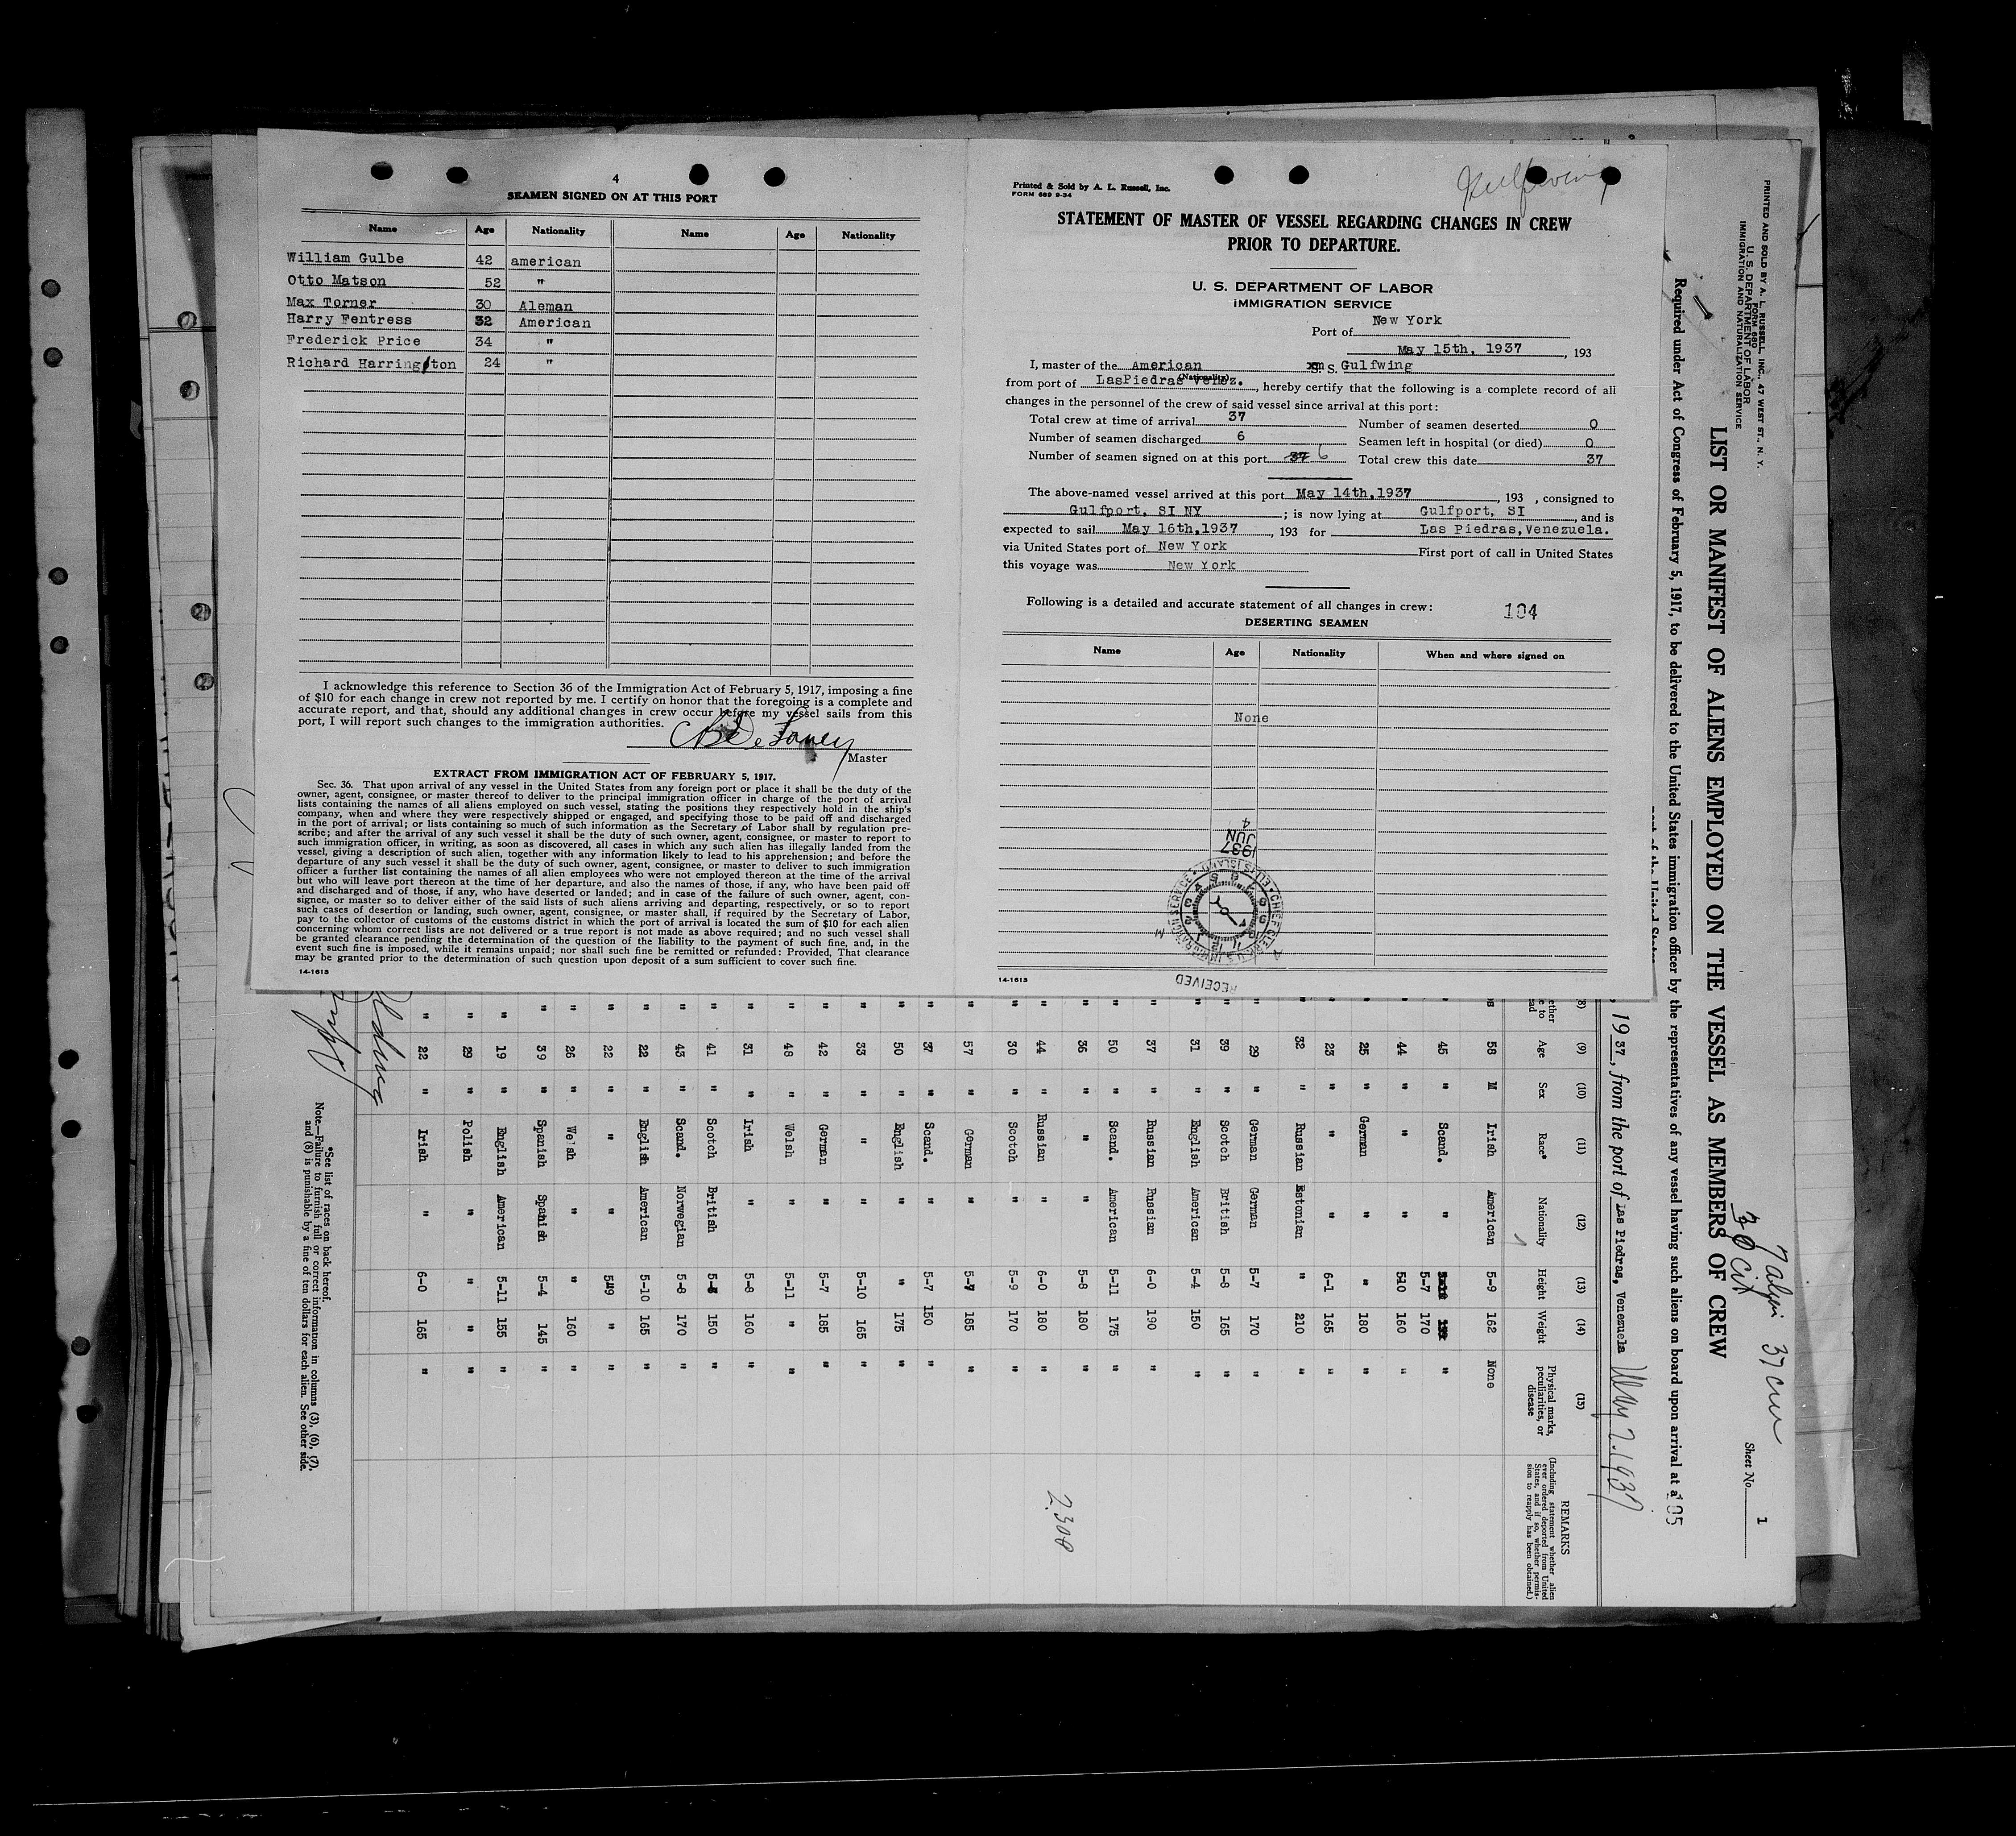 4
SEAMEN SIGNED ON AT THIS PORT
Name Age Nationality Name Age Nationality
William Gulbe 42 american
Otto Matson 52 "
Max Torner 30 Aleman
Harry Fentress 32 American
Frederick Price 34 "
Richard Harrington 24 "
I acknowledge this reference to Section 36 of the Immigration Act of February 5, 1917, imposing a fine
of $10 for each change in crew not reported by me. I certify on honor that the foregoing is a complete and
accurate report, and that, should any additional changes in crew occur before my vessel sails from this
port, I will report such changes to the immigration authorities.
Master
EXTRACT FROM IMMIGRATION ACT OF FEBRUARY 5, 1917.
Sec. 36. That upon arrival of any vessel in the United States from any foreign port or place it shall be the duty of the
owner, agent, consignee, or master thereof to deliver to the principal immigration officer in charge of the port of arrival
lists containing the names of all aliens employed on such vessel, stating the positions they respectively hold in the ship's
company, when and where they were respectively shipped or engaged, and specifying those to be paid off and discharged
in the port of arrival; or lists containing so much of such information as the Secretary of Labor shall by regulation pre-
scribe; and after the arrival of any such vessel it shall be the duty of such owner, agent, consignee, or master to report to
such immigration officer, in writing, as soon as discovered, all cases in which any such alien has illegally landed from the
vessel, giving a description of such alien, together with any information likely to lead to his apprehension; and before the
departure of any such vessel it shall be the duty of such owner, agent, consignee, or master to deliver to such immigration
officer a further list containing the names of all alien employees who were not employed thereon at the time of the arrival
but who will leave port thereon at the time of her departure, and also the names of those, if any, who have been paid off
and discharged and of those, if any, who have deserted or landed; and in case of the failure of such owner, agent, con-
signee, or master so to deliver either of the said lists of such aliens arriving and departing, respectively, or so to report
such cases of desertion or landing, such owner, agent, consignee, or master shall, if required by the Secretary of Labor,
pay to the collector of customs of the customs district in which the port of arrival is located the sum of $10 for each alien
concerning whom correct lists are not delivered or a true report is not made as above required; and no such vessel shall
be granted clearance pending the determination of the question of the liability to the payment of such fine, and, in the
event such fine is imposed, while it remains unpaid; nor shall such fine be remitted or refunded: Provided, That clearance
may be granted prior to the determination of such question upon deposit of a sum sufficient to cover such fine.
14-1613
Gulfwing
Printed & Sold by A. L. Russell, Inc.
FORM 689 9-34
STATEMENT OF MASTER OF VESSEL REGARDING CHANGES IN CREW
PRIOR TO DEPARTURE.
U. S. DEPARTMENT OF LABOR
IMMIGRATION SERVICE
Port of New York
May 15th, 1937, 193
I, master of the American S. S. Gulfwing
(Nationality)
from port of LasPiedras Venez., hereby certify that the following is a complete record of all
changes in the personnel of the crew of said vessel since arrival at this port:
Total crew at time of arrival 37 Number of seamen deserted 0
Number of seamen discharged 6 Seamen left in hospital (or died) 0
Number of seamen signed on at this port 37 6 Total crew this date 37
The above-named vessel arrived at this port May 14th,1937, 193 , consigned to
Gulfport, SI NY ; is now lying at Gulfport, SI, and is
expected to sail May 16th,1937, 193 for Las Piedras,Venezuela.
via United States port of New York First port of call in United States
this voyage was New York
Following is a detailed and accurate statement of all changes in crew: 104
DESERTING SEAMEN
Name Age Nationality When and where signed on
None
RECEIVED
CHIEF CLERK U.S. IMMIGRATION SERVICE ELLIS ISLAND
1937
JUN
4
14-1613
PRINTED AND SOLD BY A. L. RUSSELL, INC., 47 WEST ST., N. Y.
FORM 680
U. S. DEPARTMENT OF LABOR
IMMIGRATION AND NATURALIZATION SERVICE
Sheet No. 1
37 crew
LIST OR MANIFEST OF ALIENS EMPLOYED ON THE VESSEL AS MEMBERS OF CREW
Required under Act of Congress of February 5, 1917, to be delivered to the United States immigration officer by the representatives of any vessel having such aliens on board upon arrival at a
, 1937, from the port of Las Piedras, Venezuela
(9) (10) (11) (12) (13) (14) (15)
Age Sex Race* Nationality Height Weight Physical marks, peculiarities, or disease
REMARKS
(Including statement whether alien ever ordered deported from United States, and if so, whether permission to reapply has been obtained.)
58 M Irish American 5-9 162 None
45 " Scand. " 5-7 170 "
44 " " " 510 160 "
25 " German " " 180 "
23 " " " 6-1 165 "
" 32 " Russian Estonian " 210 "
" 29 " German German 5-7 170 "
" 39 " Scotch British 5-8 165 "
" 31 " English American 5-4 150 "
" 37 " Russian Russian 6-0 190 "
" 50 " Scand. American 5-11 175 "
" 36 " " " 5-8 180
" 44 " Russian " 6-0 180 "
" 30 " Scotch " 5-9 170 "
" 57 " German " 5-7 185 "
" 37 " Scand. " 5-7 150 "
" 50 " English " " 175 "
" 33 " " " 5-10 165 "
" 42 " German " 5-7 185 "
" 48 " Welsh " 5-11 " "
" 31 " Irish " 5-8 160 "
" 41 " Scotch British 5-5 150 "
" 43 " Scand. Norwegian 5-8 170 "
" 22 " English American 5-10 165 "
" 22 " " " 5"9 " "
" 26 " Welsh " " 160 "
" 39 " Spanish Spanish 5-4 145 "
" 19 " English American 5-11 155 "
" 29 " Polish " " " "
" 22 " Irish " 6-0 165 "
2300
*See list of races on back hereof.
Note.—Failure to furnish full or correct information in columns (3), (6), (7),
and (8) is punishable by a fine of ten dollars for each alien. See other side.